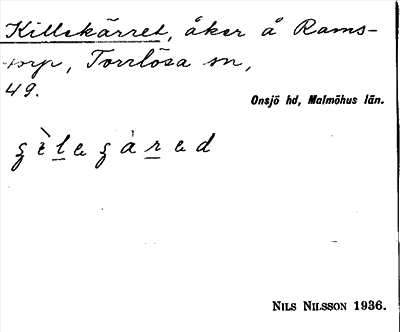 Killekärret, åker å Rams-
torp, Torrlösa sn,
49.
Onsjö hd, Malmöhus län.
NILS NILSSON 1936.